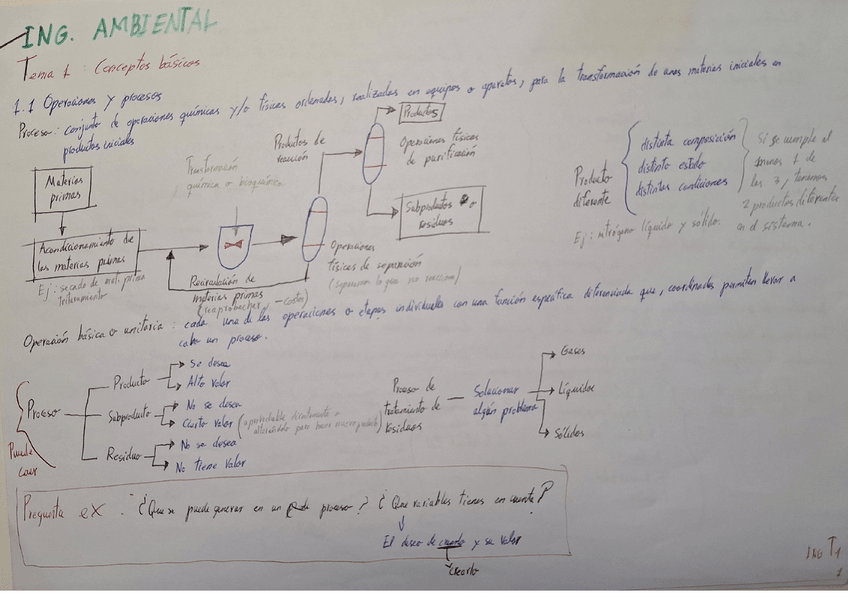 ING. AMBIENTAL
Tema 1: Conceptos básicos
1.1 Operaciones y procesos
Proceso: conjunto de operaciones químicas y/o físicas ordenadas, realizadas en equipos o aparatos, para la transformación de unas materias iniciales en
productos iniciales
Materias
primas
Acondicionamiento de
las materias primas
Ej: secado de mat. prima
Transformación
química o bioquímica
Recirculación de
materias primas
costes)
Productos de
reacción
Operaciones
físicas de separación
(separamos lo que no reacciona)
Productos
Operaciones físicas
de purificación
Subproductos o
residuos
Producto
diferente
distinta composición
distinto estado
distintas condiciones
Si se cumple al
menos 1 de
las 3, tenemos
2 productos diferentes
en el sistema.
Ej: nitrógeno líquido y sólido.
Operación básica o unitaria: cada una de las operaciones o etapas individuales con una función específica diferenciada que, coordinadas permiten llevar a
cabo un proceso.
Puede
Proceso
Producto
Se desea
Alto valor
Subproducto
No se desea
Cierto valor
Residuo
No se desea
No tiene valor
Proceso de
tratamiento de
residuos
Solucionar
algún problema
Gases
Líquidos
Sólidos
Pregunta ex: ¿Que se puede generar en un proceso? ¿Que variables tienes en cuenta?
El deseo de crearlo y su valor
crearlo
ING T1
1